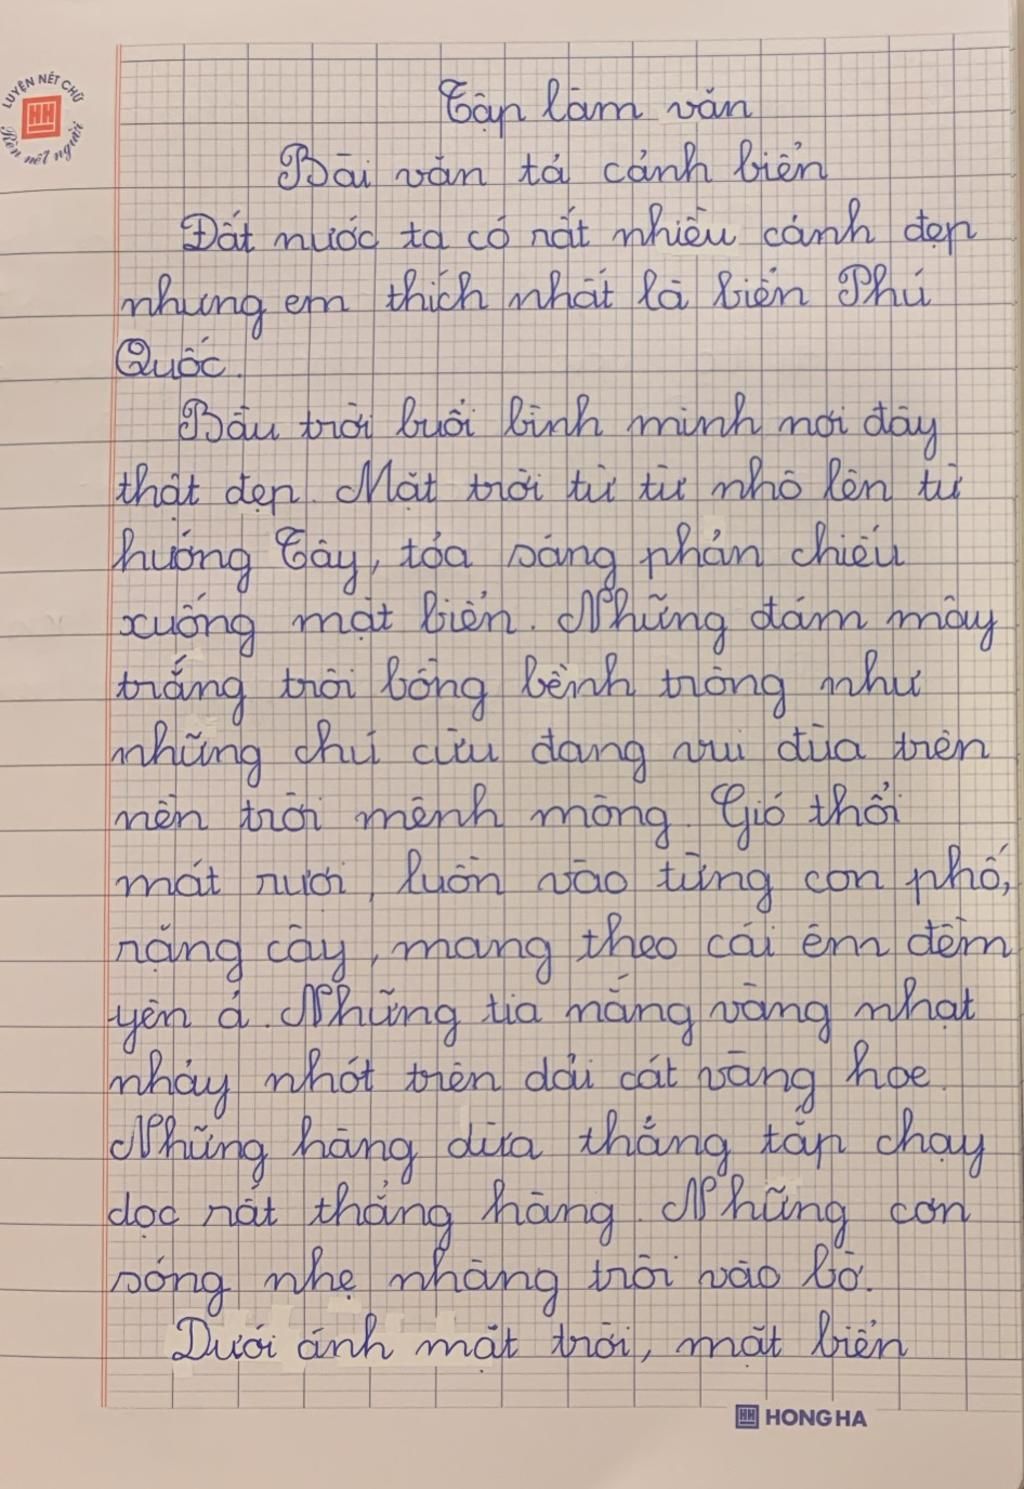 LUYỆN NÉT CHỮ
HH
Rèn nết người
Tập làm văn
Bài văn tả cảnh biển
Đất nước ta có rất nhiều cảnh đẹp
nhưng em thích nhất là biển Phú
Quốc.
Bầu trời buổi bình minh nơi đây
thật đẹp. Mặt trời từ từ nhô lên từ
hướng Tây, tỏa sáng phản chiếu
xuống mặt biển. Những đám mây
trắng trôi bồng bềnh trông như
những chú cừu đang vui đùa trên
nền trời mênh mông. Gió thổi
mát rượi, luồn vào từng con phố,
rặng cây, mang theo cái êm đềm
yên ả. Những tia nắng vàng nhạt
nhảy nhót trên dải cát vàng hoe.
Những hàng dừa thẳng tắp chạy
dọc rất thẳng hàng. Những con
sóng nhẹ nhàng trôi vào bờ.
Dưới ánh mặt trời, mặt biển
HH HONG HA